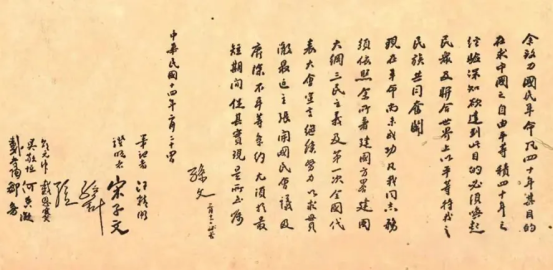 余致力國民革命凡四十年其目的
在求中國之自由平等積四十年之
經驗深知欲達到此目的必須喚起
民衆及聯合世界上以平等待我之
民族共同奮鬭
現在革命尚未成功凡我同志務
須依照余所著建國方畧建國
大綱三民主義及第一次全國代
表大會宣言繼續努力以求貫
澈最近主張開國民會議及
廢除不平等條約尤須於最
短期間促其實現是所至囑
孫文
中華民國十四年二月二十四日
筆記者 汪精衛
證明者 宋子文
邵元冲 戴恩賽
吳敬恆 何香凝
戴季陶 鄒魯